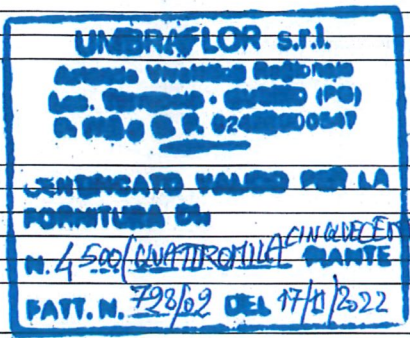 UMBRAFLOR s.r.l.
Azienda Vivaistica Regionale
Loc. GUBBIO (PG)
CERTIFICATO VALIDO PER LA
FORNITURA DI
N. 4500 (QUATTROMILACINQUECENTO PIANTE
FATT. N. 798/02 DEL 17/11/2022